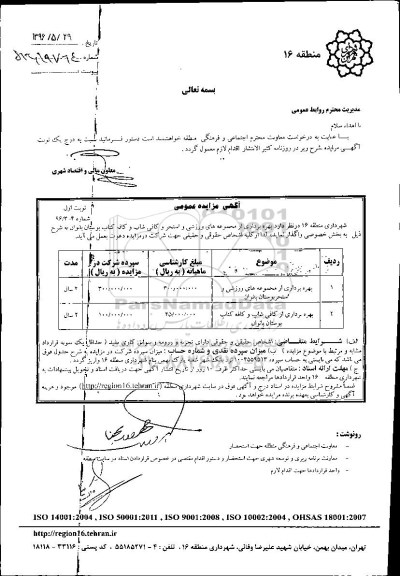 منطقه ۱۶
تاریخ: ۱۳۹۶/۵/۲۹
شماره:
پیوست:
بسمه تعالی
مدیریت محترم روابط عمومی
با اهداء سلام
با عنایت به درخواست معاونت محترم اجتماعی و فرهنگی منطقه خواهشمند است دستور فرمائید نسبت به درج یک نوبت
آگهی مزایده بشرح زیر در روزنامه کثیر الانتشار اقدام لازم معمول گردد.
معاون مالی و اقتصاد شهری
نوبت اول
آگهی مزایده عمومی
شماره ۹۶/۳۰۴
شهرداری منطقه ۱۶ درنظر دارد بهره برداری از مجموعه های ورزشی و استخر و کافی شاپ و کافه کتاب بوستان بانوان به شرح
ذیل به بخش خصوصی واگذار نماید، لذا از کلیه اشخاص حقوقی و حقیقی جهت شرکت در مزایده دعوت بعمل می آید.
ردیف موضوع مبلغ کارشناسی ماهیانه (به ریال) سپرده شرکت در مزایده (به ریال) مدت
۱ بهره برداری از مجموعه های ورزشی و استخر بوستان بانوان ۳۰۰/۰۰۰/۰۰۰ ۲ سال
۲ بهره برداری از کافی شاپ و کافه کتاب بوستان بانوان ۴۵/۰۰۰/۰۰۰ ۱۰۰/۰۰۰/۰۰۰ ۲ سال
الف: شرایط متقاضی: اشخاص حقیقی و حقوقی دارای تجربه و رزومه و سوابق کاری مفید (حداقل یک سویه قرارداد
مشابه و مرتبط با موضوع مزایده) ب) میزان سپرده نقدی و شماره حساب: میزان سپرده شرکت در مزایده به شرح جدول فوق
می باشد که می بایستی به حساب سپرده بانک شهر بنام شهرداری منطقه ۱۶ واریز گردد.
ج) مهلت ارائه اسناد: متقاضیان می بایستی حداکثر ظرف ۱۰ روز از تاریخ انتشار آگهی جهت دریافت اسناد و تحویل پیشنهادات به
شهرداری منطقه ۱۶ واحد قراردادها مراجعه نمایند.
ضمناً مشروح شرایط مزایده در اسناد درج و آگهی فوق در سایت شهرداری منطقه (http://region16.tehran.ir) موجود و هزینه
آگهی و کارشناسی به عهده برنده مزایده خواهد بود.
ParsNamadData
رونوشت:
- معاونت اجتماعی و فرهنگی منطقه جهت استحضار
- معاونت برنامه ریزی و توسعه شهری جهت استحضار و دستور اقدام مقتضی در خصوص قراردادن اسناد در سایت منطقه
- واحد قراردادها جهت اقدام لازم
ISO 14001:2004 , ISO 50001:2011 , ISO 9001:2008 , ISO 10002:2004 , OHSAS 18001:2007
http://region16.tehran.ir
تهران، میدان بهمن، خیابان شهید علیرضا وفائی، شهرداری منطقه ۱۶، تلفن: ۴ - ۵۵۱۸۵۲۷۱، کد پستی: ۳۳۱۱۶ - ۱۸۱۱۸